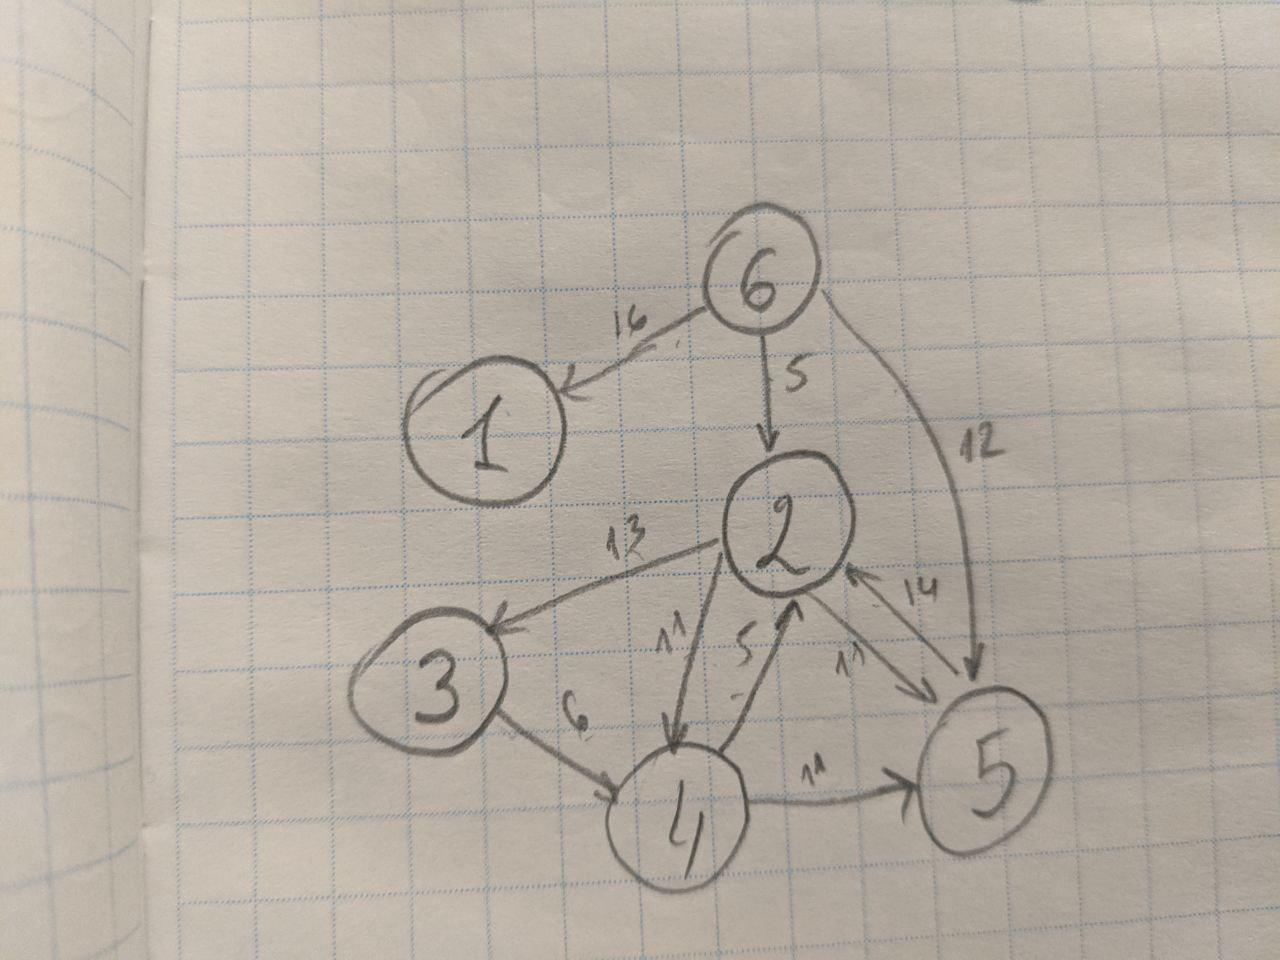 6
16
5
1
12
2
13
14
11
5
11
3
6
11
5
4